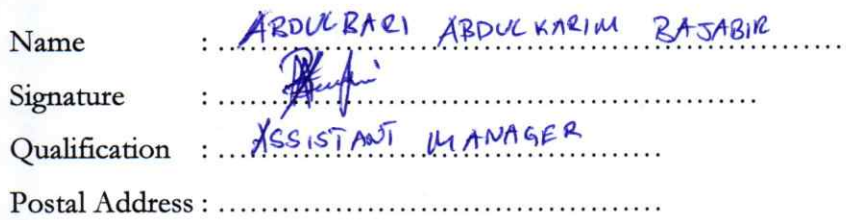 Name : ABDULBARI ABDULKARIM BAJABIR
Signature :
Qualification : ASSISTANT MANAGER
Postal Address :